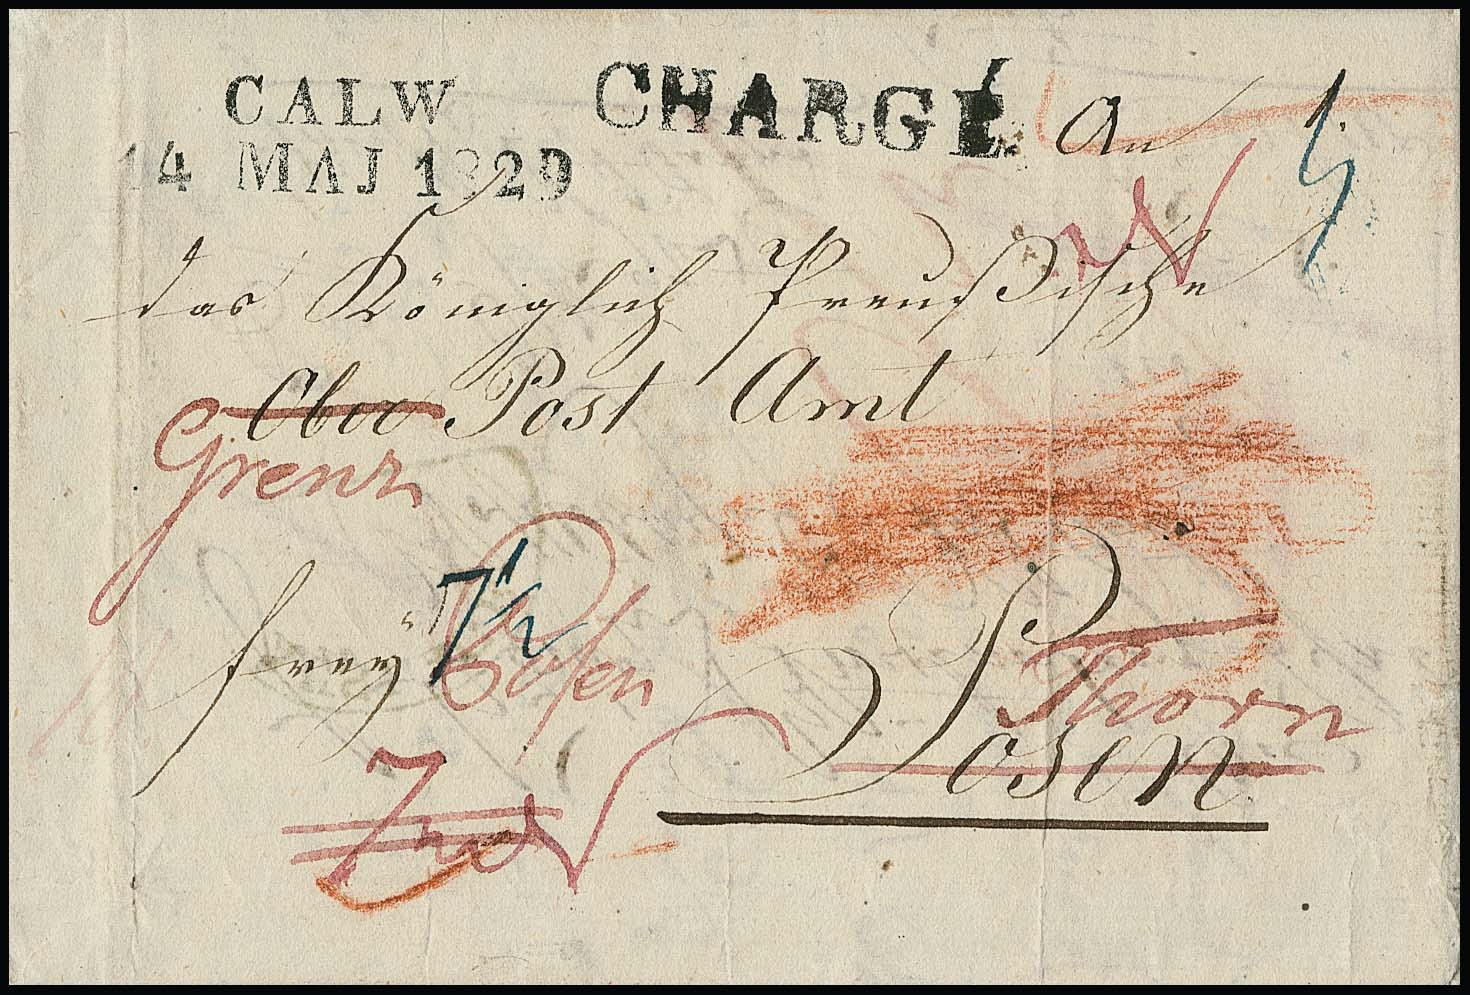 CALW CHARGÉ. An
14 MAJ 1829
das Königlich Preußische
Ober Post Amt
Grenz
frey 7 1/2 Posen
Thorn
Posen